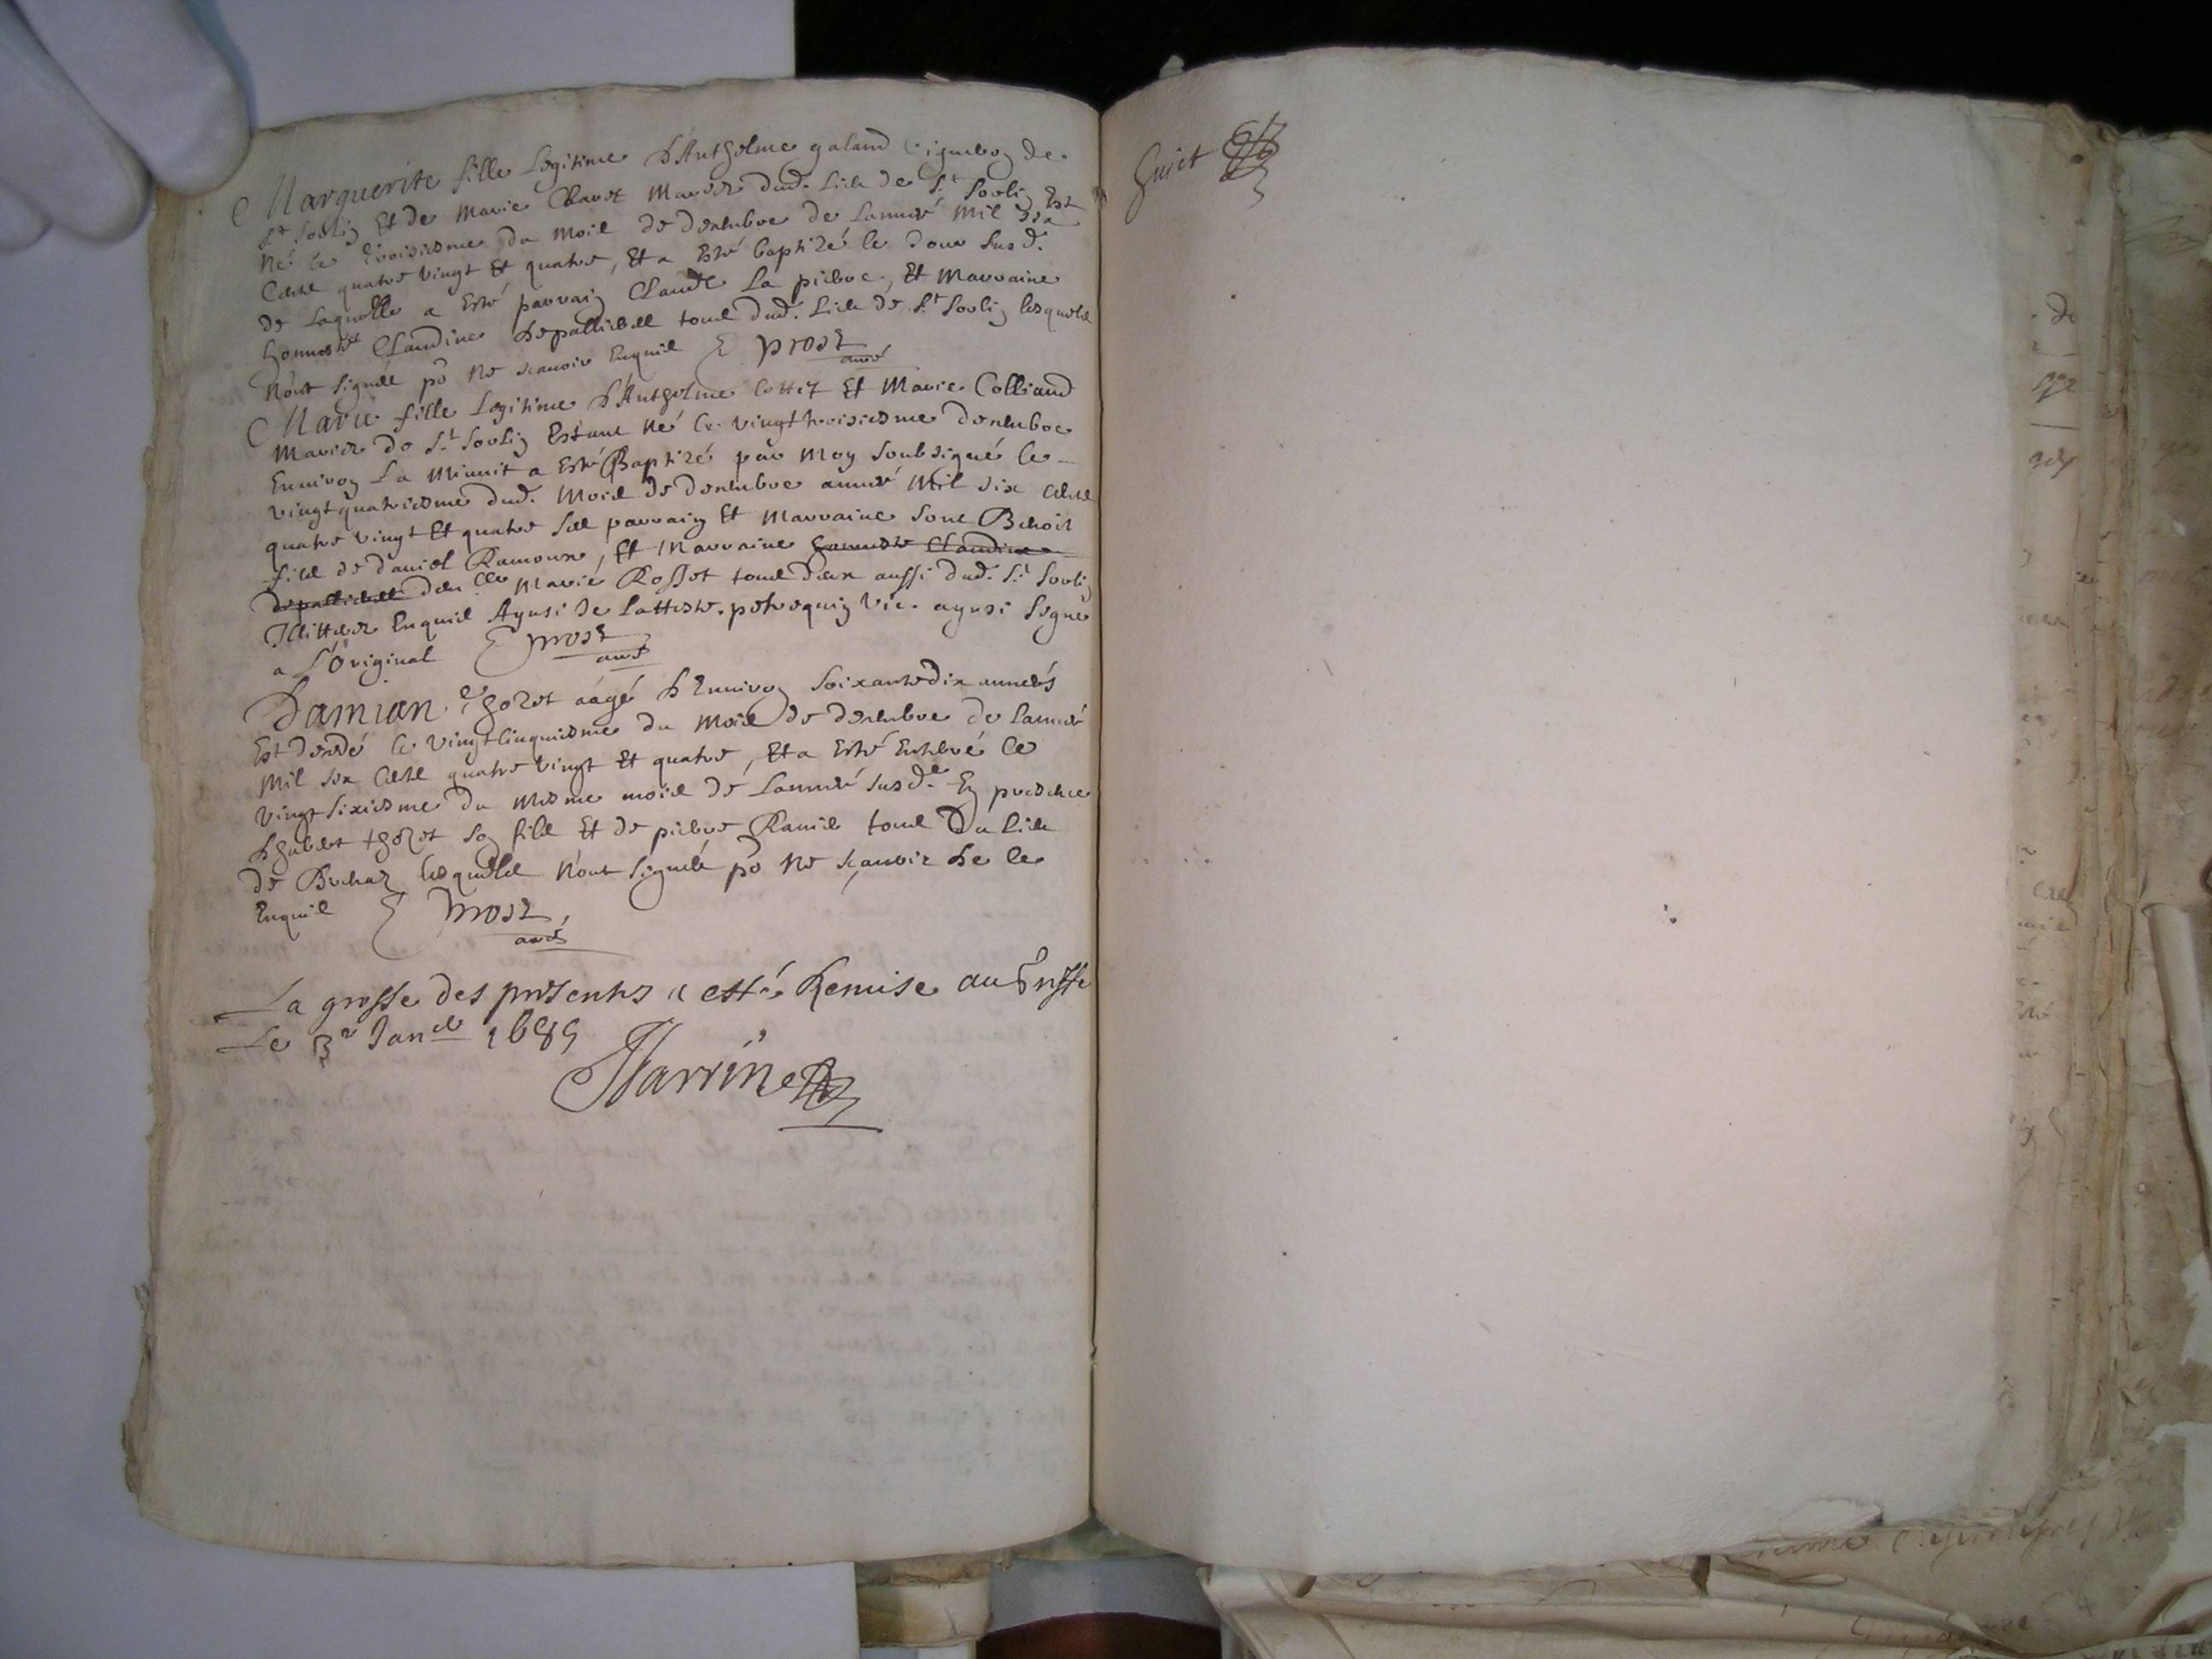 Marguerite fille Legitime d'Anthelme galand vigneron de
St Sorlin Et de Marie Ravet Mariez dud. Lieu de St Sorlin Est
Né le troisiesme du mois de decembre de l'année mil six
Cents quatre vingt Et quatre, Et a Esté baptizé le Jour susd.
de Laquelle a Esté parrain Claude La pierre, Et Marraine
honneste Claudine tous dud. Lieu de St Sorlin lesquels
N'ont signés po Ne scavoir Enquis Prost
curé
Marie fille Legitime d'Anthelme Cottet Et Marie Colliand
Mariez de St Sorlin Estant Né le vingt troisiesme decembre
Environ La Minuit a Esté Baptizé par Moy Soubsigné le
vingt quatriesme dud. Mois de decembre année Mil six Cents
quatre vingt Et quatre Ses parrain Et Marraine sont Benoit
fils de daniel Ramoux, Et Marraine honneste Claudine
delle Marie Rosset tous deux aussi dud. St Sorlin
Illittez Enquis Aynsi Je L'atteste. vic. aynsi Signé
a L'Original Prost
curé
Damian thozet aagé d'Environ Soixante dix années
Est decedé le vingt cinquiesme du Mois de decembre de L'année
Mil six Cents quatre vingt Et quatre, Et a Esté Enterré le
vingt sixiesme du Mesme mois de L'année susde. En presence
d'hubert thozet son fils Et de pierre Ramel tous du Lieu
de lesquels N'ont signés po Ne scavoir de ce
Enquis Prost
curé
La grosse des presentes a esté Remise au greffe
Le 3e Janer 1685
Guiet